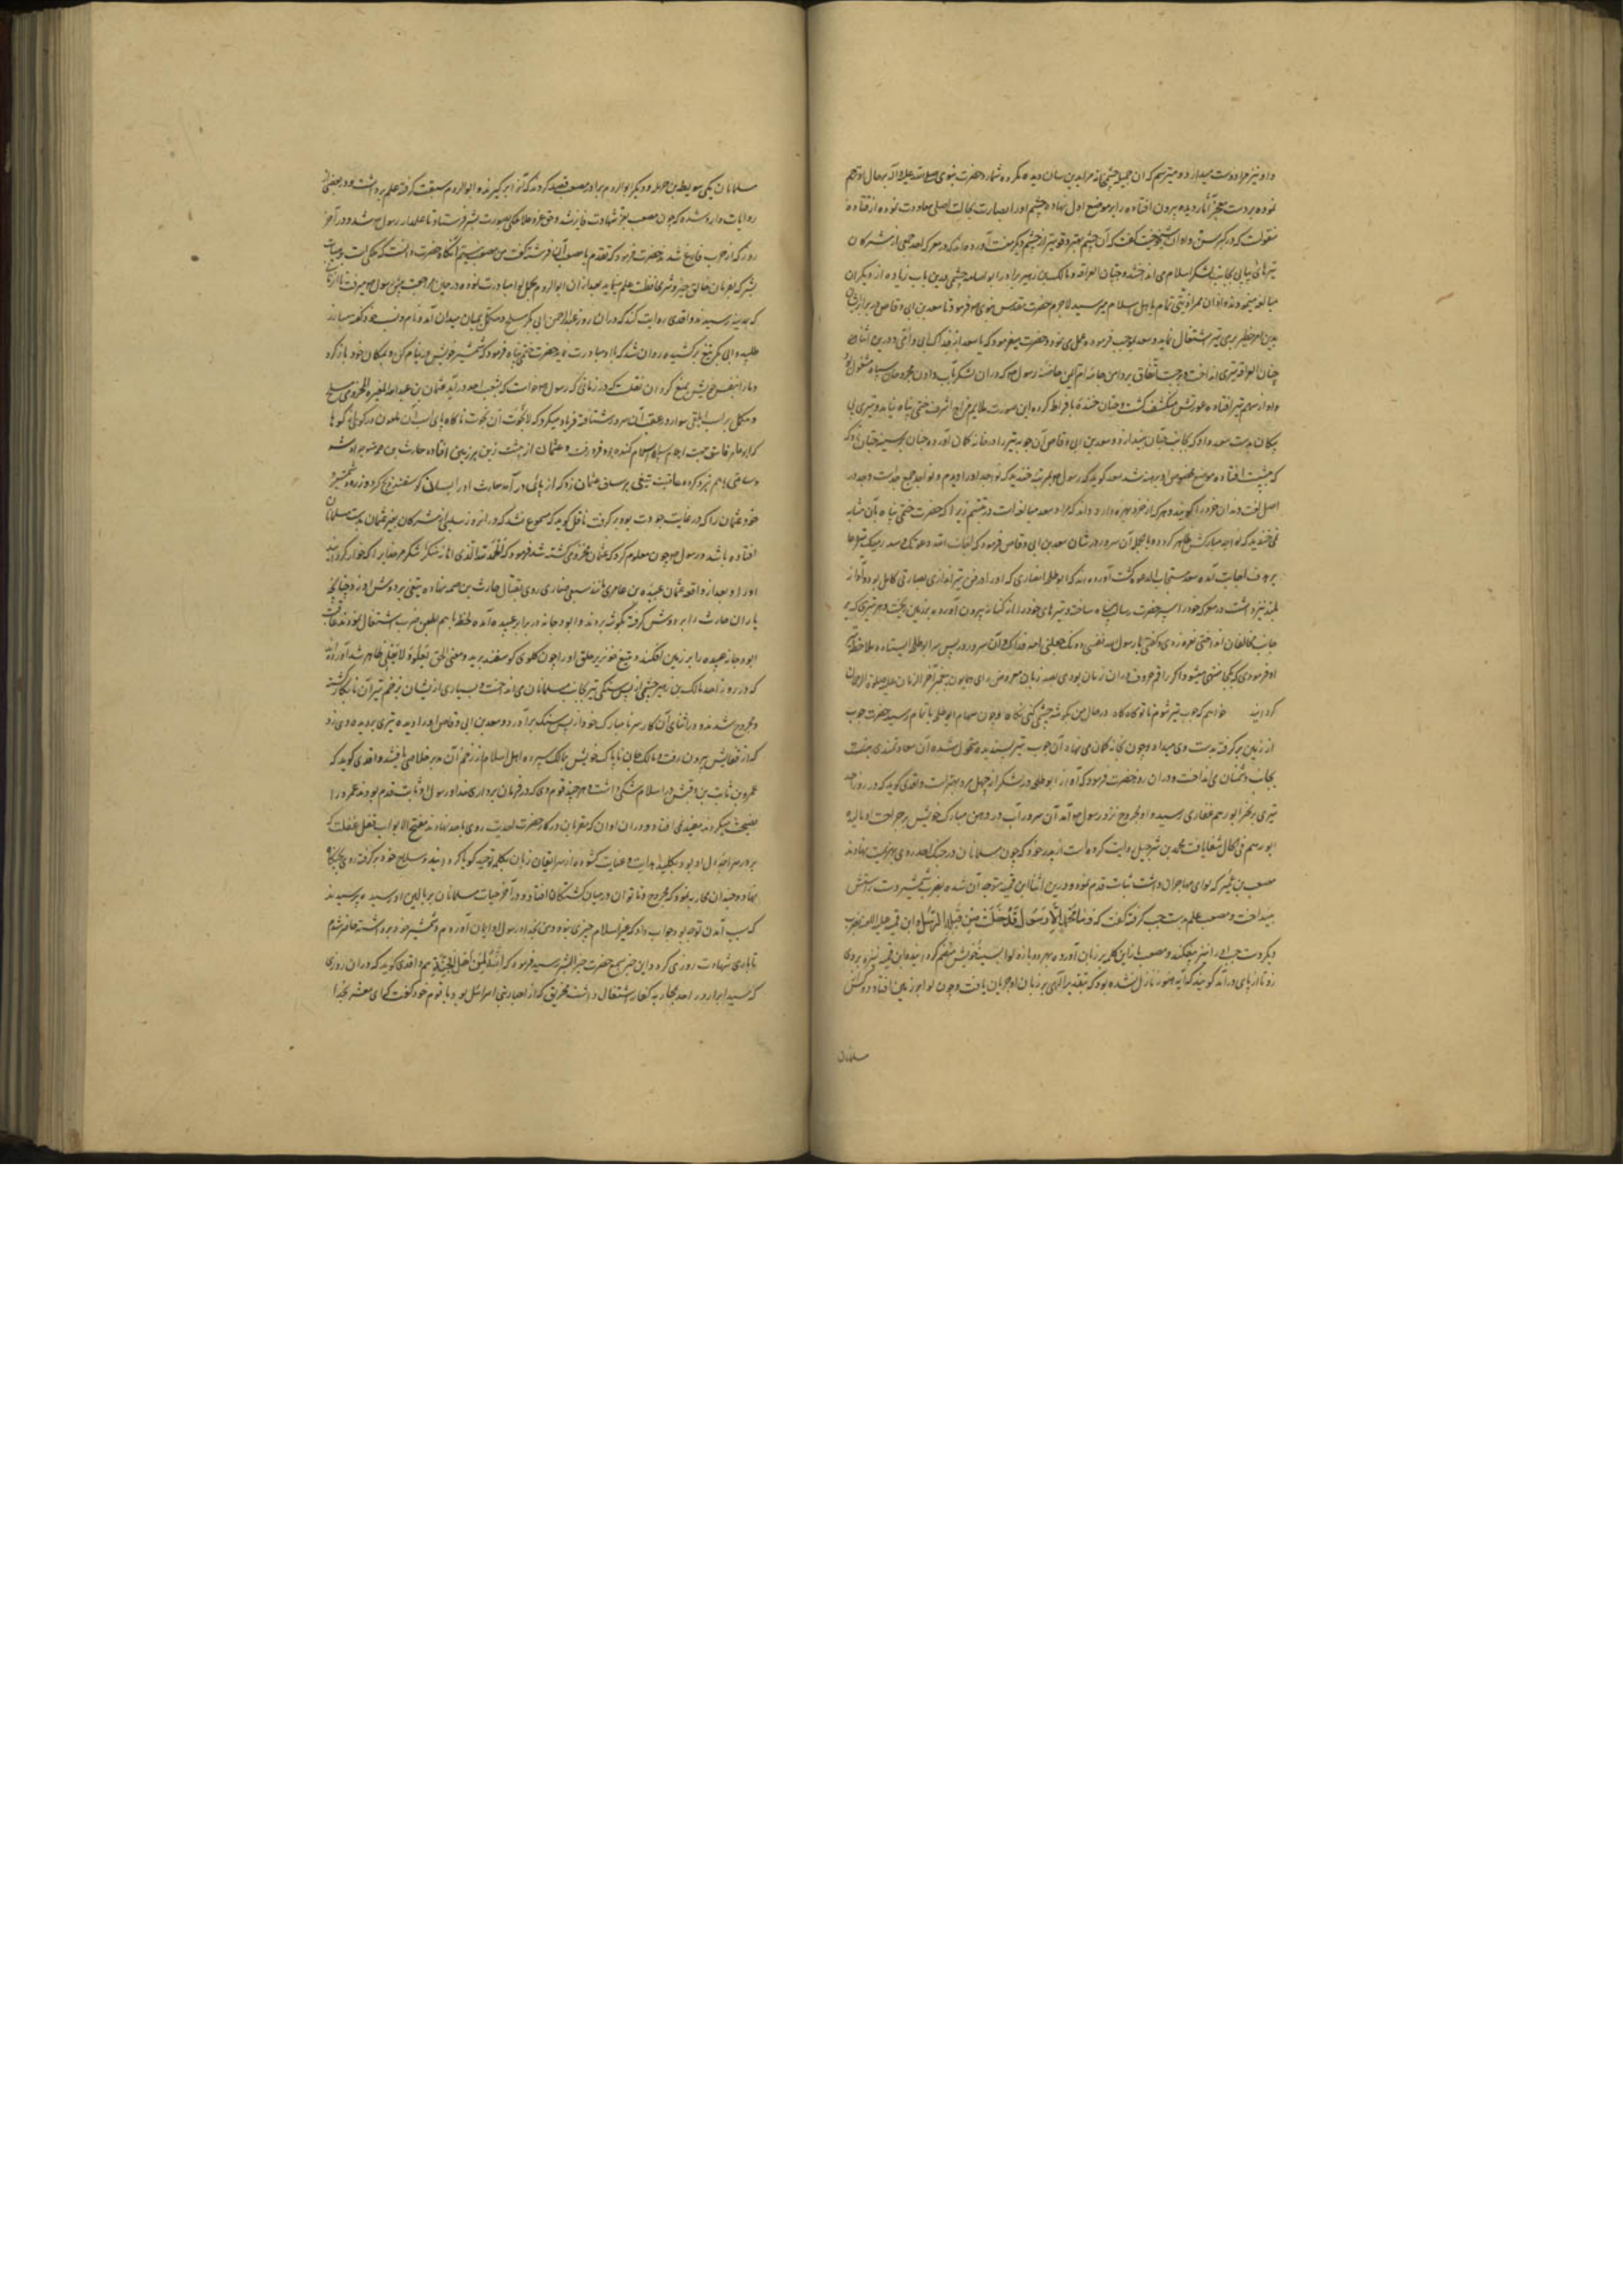 و او نیز مرا دوست میدارد و میترسم که ان جمیله چشم مرا بدین سان دیده مکروه شمارد حضرت نبوی صلی الله علیه و آله بر حال او ترحم
نموده بدست معجز آثار دیده بیرون افتاده را بر موضع اول نهاد و چشم او را بصارت بحالت اصلی معاودت نموده از قتاده
منقولست که در کبر سن و اوان شیخوخیت گفت که آن چشم بهتر و قویتر از چشم دیگر منست آورده اند که در معرکه احد جمعی از مشرکان
تیرهای پیاپی بجانب لشکر اسلام می انداختند و حبان العرقه و مالک بن زهیر برادر ابو اسامه جشمی درین باب زیاده از دیگران
مبالغه مینمودند و از ان ممر اذیتی تمام باهل اسلام میرسید لاجرم حضرت مقدس نبوی فرمود تا سعد بن ابی وقاص در برابر ایشان
بدین امر خطیر یعنی تیر اشتغال نماید و سعد بموجب فرموده عمل می نمود و حضرت میفرمود که یا سعد ارم فداک ابی و امی و درین اثنا
حبان العرقه تیری انداخت و بر حسب اتفاق بر دامن جامه ام ایمن حاضنه رسول که دران لشکر بآب دادن مجروحان سپاه مشغول بود
و او از سهم تیر افتاده عورتش منکشف گشت و حبان خنده بافراط کرده این صورت ملایم مزاج اشرف ختمی پناه نیامد و تیری بی
پیکان بدست سعد داد که بجانب حبان بیندازد و سعد بن ابی وقاص آن چوبه تیر را در خانه کمان آورده چنان بر سینه حبان زد که
که به پشت افتاده موضع مخصوص او برهنه شد سعد گوید که رسول مرتبه خندید که نواجذ او را دیدم و نواجذ جمع ناجذ است و ناجذ در
اصل لغت دندان خرد را گویند و هر که از خرد بهره دارد داند که مراد سعد مبالغه است در تبسم زیرا که حضرت ختمی پناه بآن مثابه
نمی خندید که نواجذ مبارکش ظاهر گردد و بالجمله آن سرور در شان سعد بن ابی وقاص فرمود که اجاب الله دعوتک و سدد رمیتک تیر دعا
بر هدف اجابت آمده سعد مستجاب الدعوه گشت آورده اند که ابو طلحه انصاری که او را در فن تیراندازی بصارتی کامل بود و آواز
بلند نیز داشت در معرکه خود را سپر حضرت رسالت پناه ساخت و تیرهای خود را از کنانه بیرون آورده بر زمین ریخت و هر تیری که بر
جانب مخالفان انداختی نعره زدی و گفتی یا رسول الله نفسی دون نفسک جعلنی الله فداک و آن سرور در پس سر ابو طلحه ایستاده ملاحظه
او فرمودی که بکجا منتهی میشود اگر راقم حروف دران زمان بودی بصد زبان معروض رای همایون پیغمبر آخر الزمان علیه صلوة الرحمن
گردانید خواهم که چوب تیر شوم تا تو گاه گاه در حال من بگوشه چشمی کنی نگاه و چون سهام ابو طلحه باتمام رسید حضرت چوب
از زمین برگرفته بدست وی میداد و چون بخانه کمان می نهاد آن چوب تیر پسندیده متحول شده آن سعادتمند می
بجانب دشمنان می انداخت و دران روز حضرت فرمود که آواز ابو طلحه در لشکر از چهل مرد بهتر است واقدی گوید که در روز احد
تیری بر نحر ابو رهم غفاری رسید و او مجروح نزد رسول آمد آن سرور آب دهن مبارک خویش بر جراحت او مالید
ابو رهم فی الحال شفا یافت محمد بن شرحبیل روایت کرده است از پدر خود که چون مسلمانان در جنگ احد روی بهزیمت نهادند
مصعب بن عمیر که لوای مهاجران داشت ثبات قدم نمود و درین اثنا ابن قمیه متوجه آن شده بضرب شمشیر دست راستش
بینداخت و مصعب علم بدست چپ گرفته گفت که وَمَا مُحَمَّدٌ اِلَّا رَسُولٌ قَدْ خَلَتْ مِنْ قَبْلِهِ الرُّسُلُ و ابن قمیه علیه اللعنه بضرب
دیگر دست چپ او را نیز بیفکند و مصعب باز این کلمه بر زبان آورده بهر دو بازو لوا بسینه خویش منضم گردانید و ابن قمیه نیزه بر وی
زد تا از پای درآمد گویند که آیه هنوز نازل نشده بود که بتقدیر الهی بر زبان او جریان یافت و چون لوا بر زمین افتاد دو کس از
مسلمانان
مسلمانان یکی سویبط بن حرمله و دیگر ابو الروم برادر مصعب قصد کردند که آنرا برگیرند و ابو الروم سبقت گرفته علم برداشت و در بعضی از
روایات وارد شده که چون مصعب بعز شهادت فایز شد حق عز و علا ملکی بصورت بشر فرستاد تا علمدار رسول شد و در آخر
روز که از حرب فارغ شدند حضرت فرمود که تقدم یا مصعب آن فرشته گفت من مصعب نیستم آنگاه حضرت دانست که ملکی است بر صورت
بشر که بفرمان خالق خیر و شر محافظت علم مینماید بعد ازان ابو الروم بحمل لوا مبادرت نموده در حین مراجعت پیش رسول میرفت تا ازمان
که بمدینه رسیدند واقدی روایت کند که دران روز عبد الرحمن ابی بکر مسلح و مکمل بمیان میدان آمد و نام و نسب خود گفته مبارز
طلبید ابی بکر تیغ برکشیده روان شد که با او مبارزت نماید حضرت ختمی پناه فرمود که شمشیر خویش در نیام کن و بمکان خود باز گرد
و ما را بنفس خویش متمتع گردان نقلست که در زمانی که رسول خواست که بشعب احد درآید عثمان بن عبد الله المغیره المخزومی مسلح
و مکمل بر اسب ابلقی سوار در عقب آن سرور شتافته فریاد میکرد که لانجوت ان نجوت ناگاه پای اسپ آن ملعون در گوی از گوها
که ابو عامر فاسق جهت اهل سپاه اسلام کنده بود فرو رفت و عثمان از پشت زین بر زمین افتاده حارث بن صمه متوجه او شد
و ساعتی باهم نبرد کرده عاقبت تیغی بر ساق عثمان زد که از پای درآمد حارث او را بسان گوسفند ذبح کرده زره و شمشیر و
خود عثمان را که در غایت جودت بود برگرفت ناقل گوید که مسموع نشد که در انروز سلبی از مشرکان بغیر عثمان بدست مسلمانان
افتاده باشد و رسول چون معلوم کرد که عثمان مخزومی کشته شد فرمود که الحمد لله الذی احانه شکر شکر مر خدا را که خوار گردانید
او را و بعد از واقعه عثمان عبیده بن عامری مانند سبع ضاری روی بقتال حارث بن صمه نهاده تیغی بر دوش او زد چنانچه
یاران حارث را بر دوش گرفته بگوشه بردند و ابو دجانه در برابر عبیده آمده لحظه باهم بطعن و ضرب اشتغال نمودند عاقبت
ابو دجانه عبیده را بر زمین افکند و بتیغ خونریز حلق او را چون گلوی گوسفند برید و معنی الحق یعلو و لا یعلی ظاهر شد آورده اند
که در روز احد مالک بن زهیر جشمی از پس سنگی تیر بجانب مسلمانان می انداخت و بسیاری از ایشان بزخم تیر آن نابکار کشته
و مجروح شدند و در اثنای آن کار سر نامبارک خود از پس سنگ برآورد و سعد بن ابی وقاص او را دیده تیری بر دیده وی زد
که از قفایش بیرون رفت و مالک جان ناپاک خویش بمالک سپرده اهل اسلام از زخم آن مدبر خلاصی یافتند واقدی گوید که
عمرو بن ثابت بن وقش در اسلام شکی داشت و هر چند قوم وی که در فرمان برداری خدا و رسول ثابت قدم بودند عمرو را
نصیحت میکردند مفید نمی افتاد و دران اوان که مقربان درگاه حضرت احدیت روی باحد نهادند مفتح الابواب قفل غفلت که
بر در سراچه دل او بود بکلید هدایت و عنایت گشوده از سر ایقان زبان بکلمه توحید گویا گردانید و سلاح خود برگرفته روی بجنگاه
نهاد و چندان محاربه نمود که مجروح و ناتوان در میان کشتگان افتاد و در آخر حیات مسلمانان بر بالین او رسیده پرسیدند
که سبب آمدن تو چه بود جواب داد که غیر اسلام چیزی نبود من بخدا و رسول او ایمان آوردم و شمشیر خود برداشته حاضر شدم
تا باری شهادت روزی کرد و این خبر بسمع حضرت خیر البشر رسید فرمود که اِنَّهُ لَمِنْ اَهْلِ الْجَنَّةِ هم واقدی گوید که دران روزی
که سید ابرار در احد بمحاربه کفار اشتغال داشت مخیریق که از احبار بنی اسرائیل بود با قوم خود گفت که ای معشر یهود بخدا